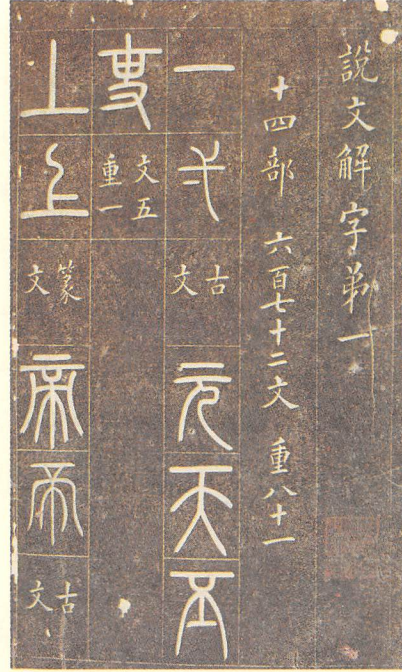 說文解字弟一
十四部 六百七十二文 重八十一
一弌古文元天丕
吏文五重一
丄上篆文帝帝古文